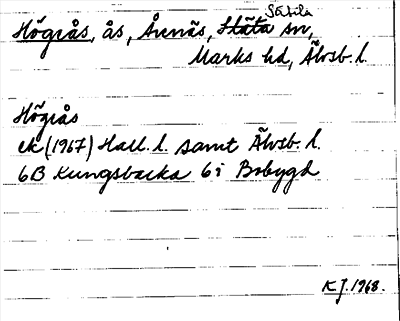 Sätila
Högrås, ås, Årenäs, Släta sn,
Marks hd, Älvsb. l.
Högrås
ek (1967) Hall. l. samt Älvsb. l.
6B Kungsbacka 6i Bobygd
K.J. 1968.